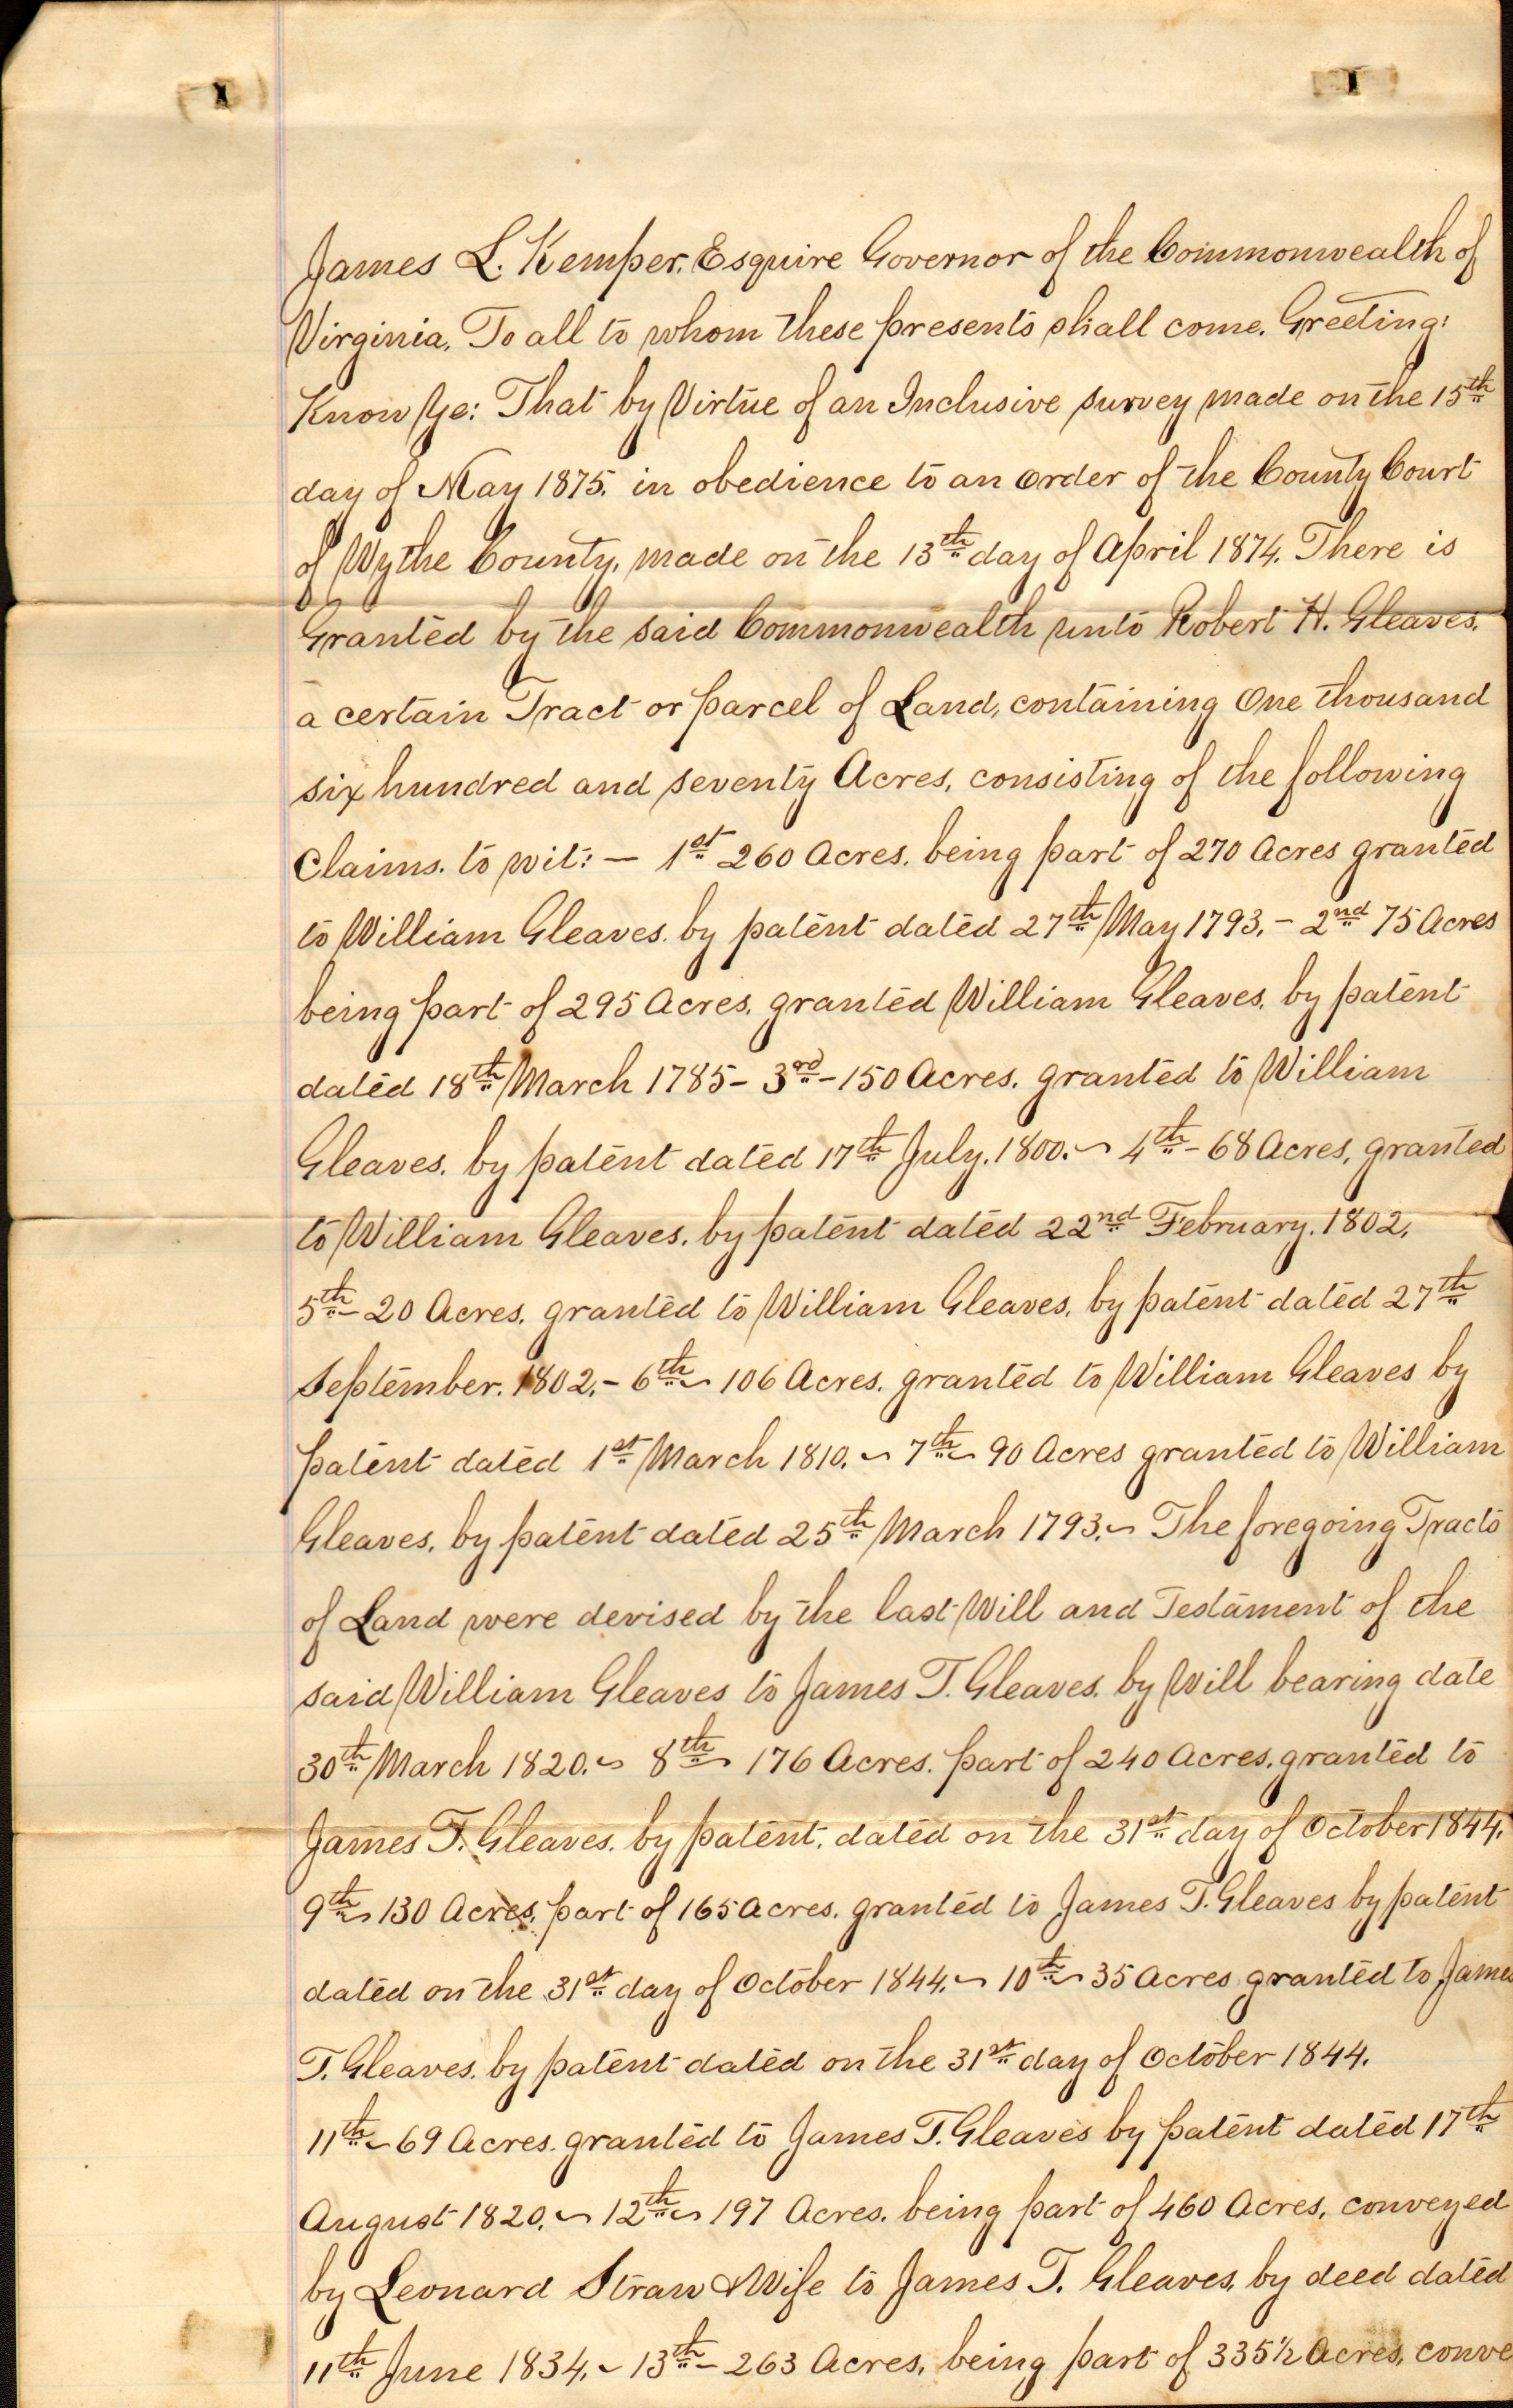 James L. Kemper, Esquire Governor of the Commonwealth of
Virginia, To all to whom these presents shall come. Greeting:
Know Ye: That by Virtue of an Inclusive survey made on the 15th
day of May 1875, in obedience to an order of the County Court
of Wythe County, made on the 13th day of April 1874. There is
Granted by the said Commonwealth unto Robert H. Gleaves,
a certain Tract or parcel of Land, containing One thousand
six hundred and seventy Acres, consisting of the following
Claims. to wit: — 1st 260 Acres, being part of 270 Acres granted
to William Gleaves, by patent dated 27th May 1793, - 2nd 75 Acres
being part of 295 Acres, granted William Gleaves, by patent
dated 18th March 1785 - 3rd - 150 Acres, granted to William
Gleaves, by patent dated 17th July, 1800. ~ 4th - 68 Acres, granted
to William Gleaves, by patent dated 22nd February, 1802,
5th - 20 Acres, granted to William Gleaves, by patent dated 27th
September. 1802, - 6th ~ 106 Acres, granted to William Gleaves by
patent dated 1st March 1810. ~ 7th ~ 90 Acres granted to William
Gleaves, by patent dated 25th March 1793. ~ The foregoing Tracts
of Land were devised by the last Will and Testament of the
said William Gleaves to James T. Gleaves, by Will bearing date
30th March 1820. ~ 8th ~ 176 Acres, part of 240 Acres, granted to
James T. Gleaves, by patent, dated on the 31st day of October 1844,
9th ~ 130 Acres, part of 165 Acres, granted to James T. Gleaves by patent
dated on the 31st day of October 1844, ~ 10th ~ 35 Acres granted to James
T. Gleaves, by patent dated on the 31st day of October 1844.
11th ~ 69 Acres, granted to James T. Gleaves by patent dated 17th
August 1820, ~ 12th ~ 197 Acres, being part of 460 Acres, conveyed
by Leonard Straw & Wife to James T. Gleaves, by deed dated
11th June 1834, ~ 13th - 263 Acres, being part of 335½ Acres, conve